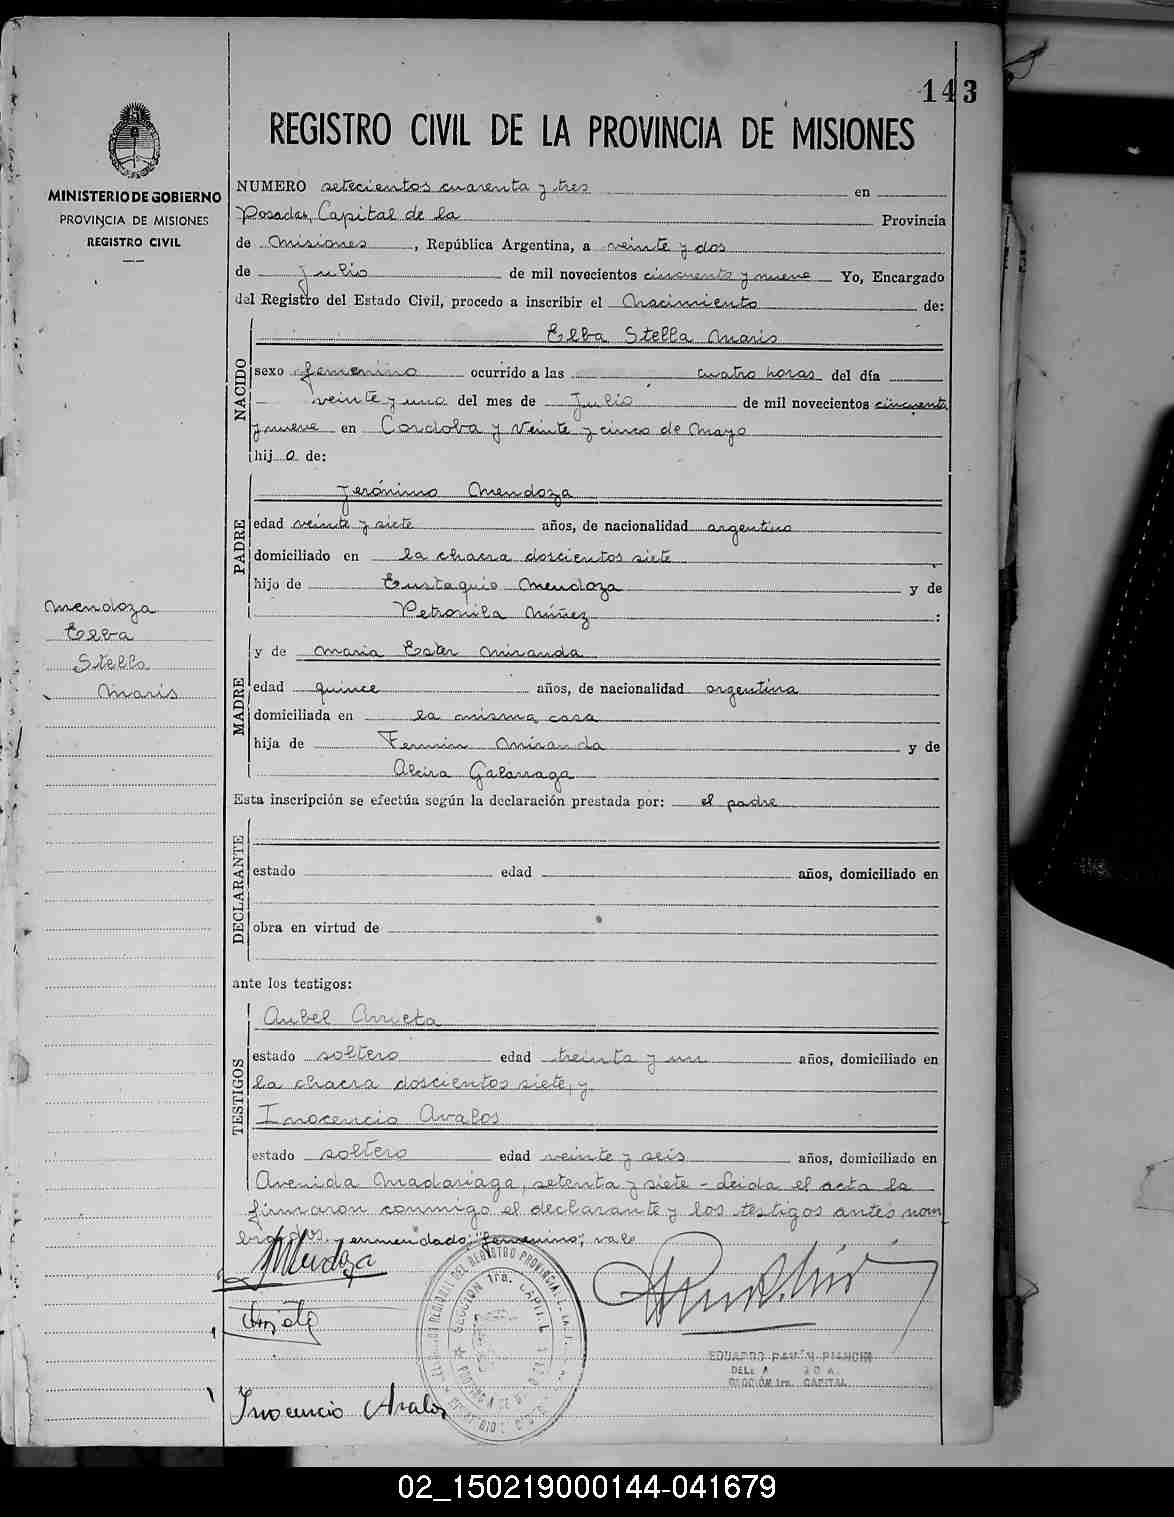 143
REGISTRO CIVIL DE LA PROVINCIA DE MISIONES
MINISTERIO DE GOBIERNO
PROVINCIA DE MISIONES
REGISTRO CIVIL
NUMERO setecientos cuarenta y tres en
Posadas, Capital de la Provincia
de Misiones, República Argentina, a veinte y dos
de Julio de mil novecientos cincuenta y nueve Yo, Encargado
del Registro del Estado Civil, procedo a inscribir el Nacimiento de:
NACIDO
Elba Stella Maris
sexo femenino ocurrido a las cuatro horas del día
veinte y uno del mes de Julio de mil novecientos cincuenta
y nueve en Cordoba y Veinte y cinco de Mayo
hij a de:
PADRE
Jerónimo Mendoza
edad veinte y siete años, de nacionalidad argentino
domiciliado en la chacra doscientos siete
hijo de Eustaquio Mendoza y de
Petronila Núñez :
Mendoza
Elba
Stella
Maris
MADRE
y de Maria Ester Miranda
edad quince años, de nacionalidad argentina
domiciliada en la misma casa
hija de Fermin Miranda y de
Alcira Galarraga
Esta inscripción se efectúa según la declaración prestada por: el padre
DECLARANTE
estado edad años, domiciliado en
obra en virtud de
ante los testigos:
TESTIGOS
Aubel Arrieta
estado soltero edad treinta y un años, domiciliado en
la chacra doscientos siete, y
Inocencio Avalos
estado soltero edad veinte y seis años, domiciliado en
Avenida Madariaga, setenta y siete - Leida el acta la
firmaron conmigo el declarante y los testigos antes nom
brados. enmendado: "femenino", vale
Mendoza
Inocencio Avalos
SECCION 1ra. CAPITAL
SECCIÓN 1ra. CAPITAL
02_150219000144-041679